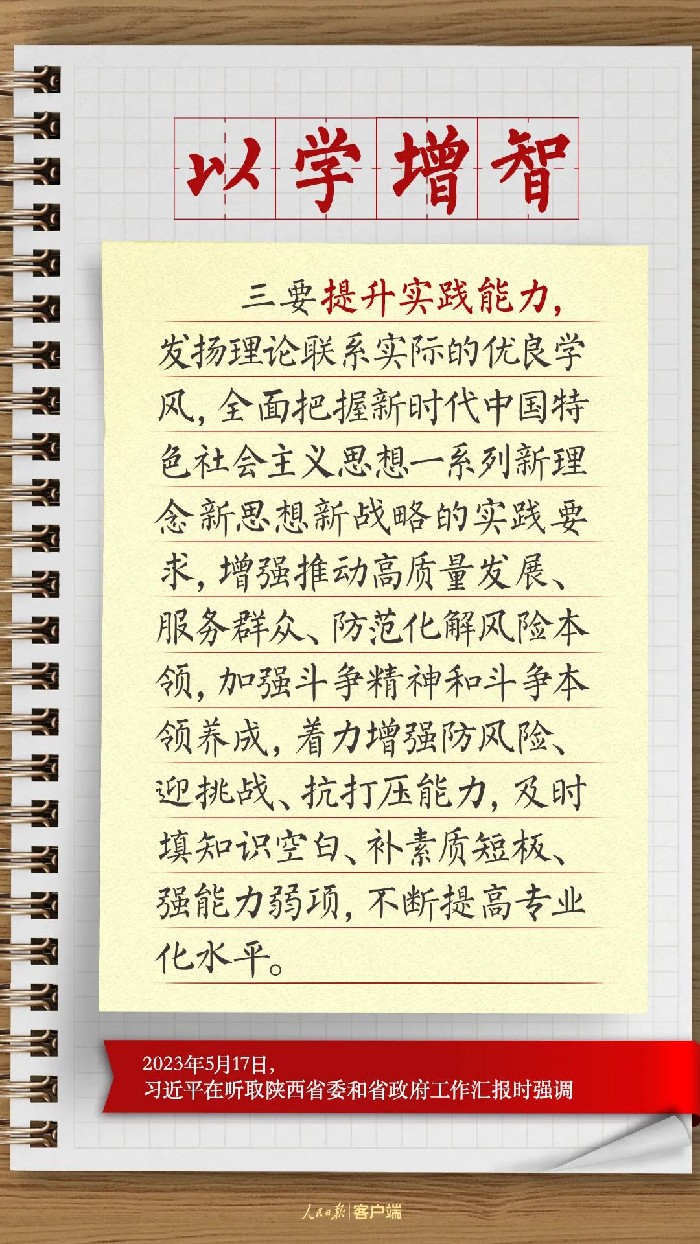 以学增智
三要提升实践能力，
发扬理论联系实际的优良学
风，全面把握新时代中国特
色社会主义思想一系列新理
念新思想新战略的实践要
求，增强推动高质量发展、
服务群众、防范化解风险本
领，加强斗争精神和斗争本
领养成，着力增强防风险、
迎挑战、抗打压能力，及时
填知识空白、补素质短板、
强能力弱项，不断提高专业
化水平。
2023年5月17日，
习近平在听取陕西省委和省政府工作汇报时强调
人民日报|客户端